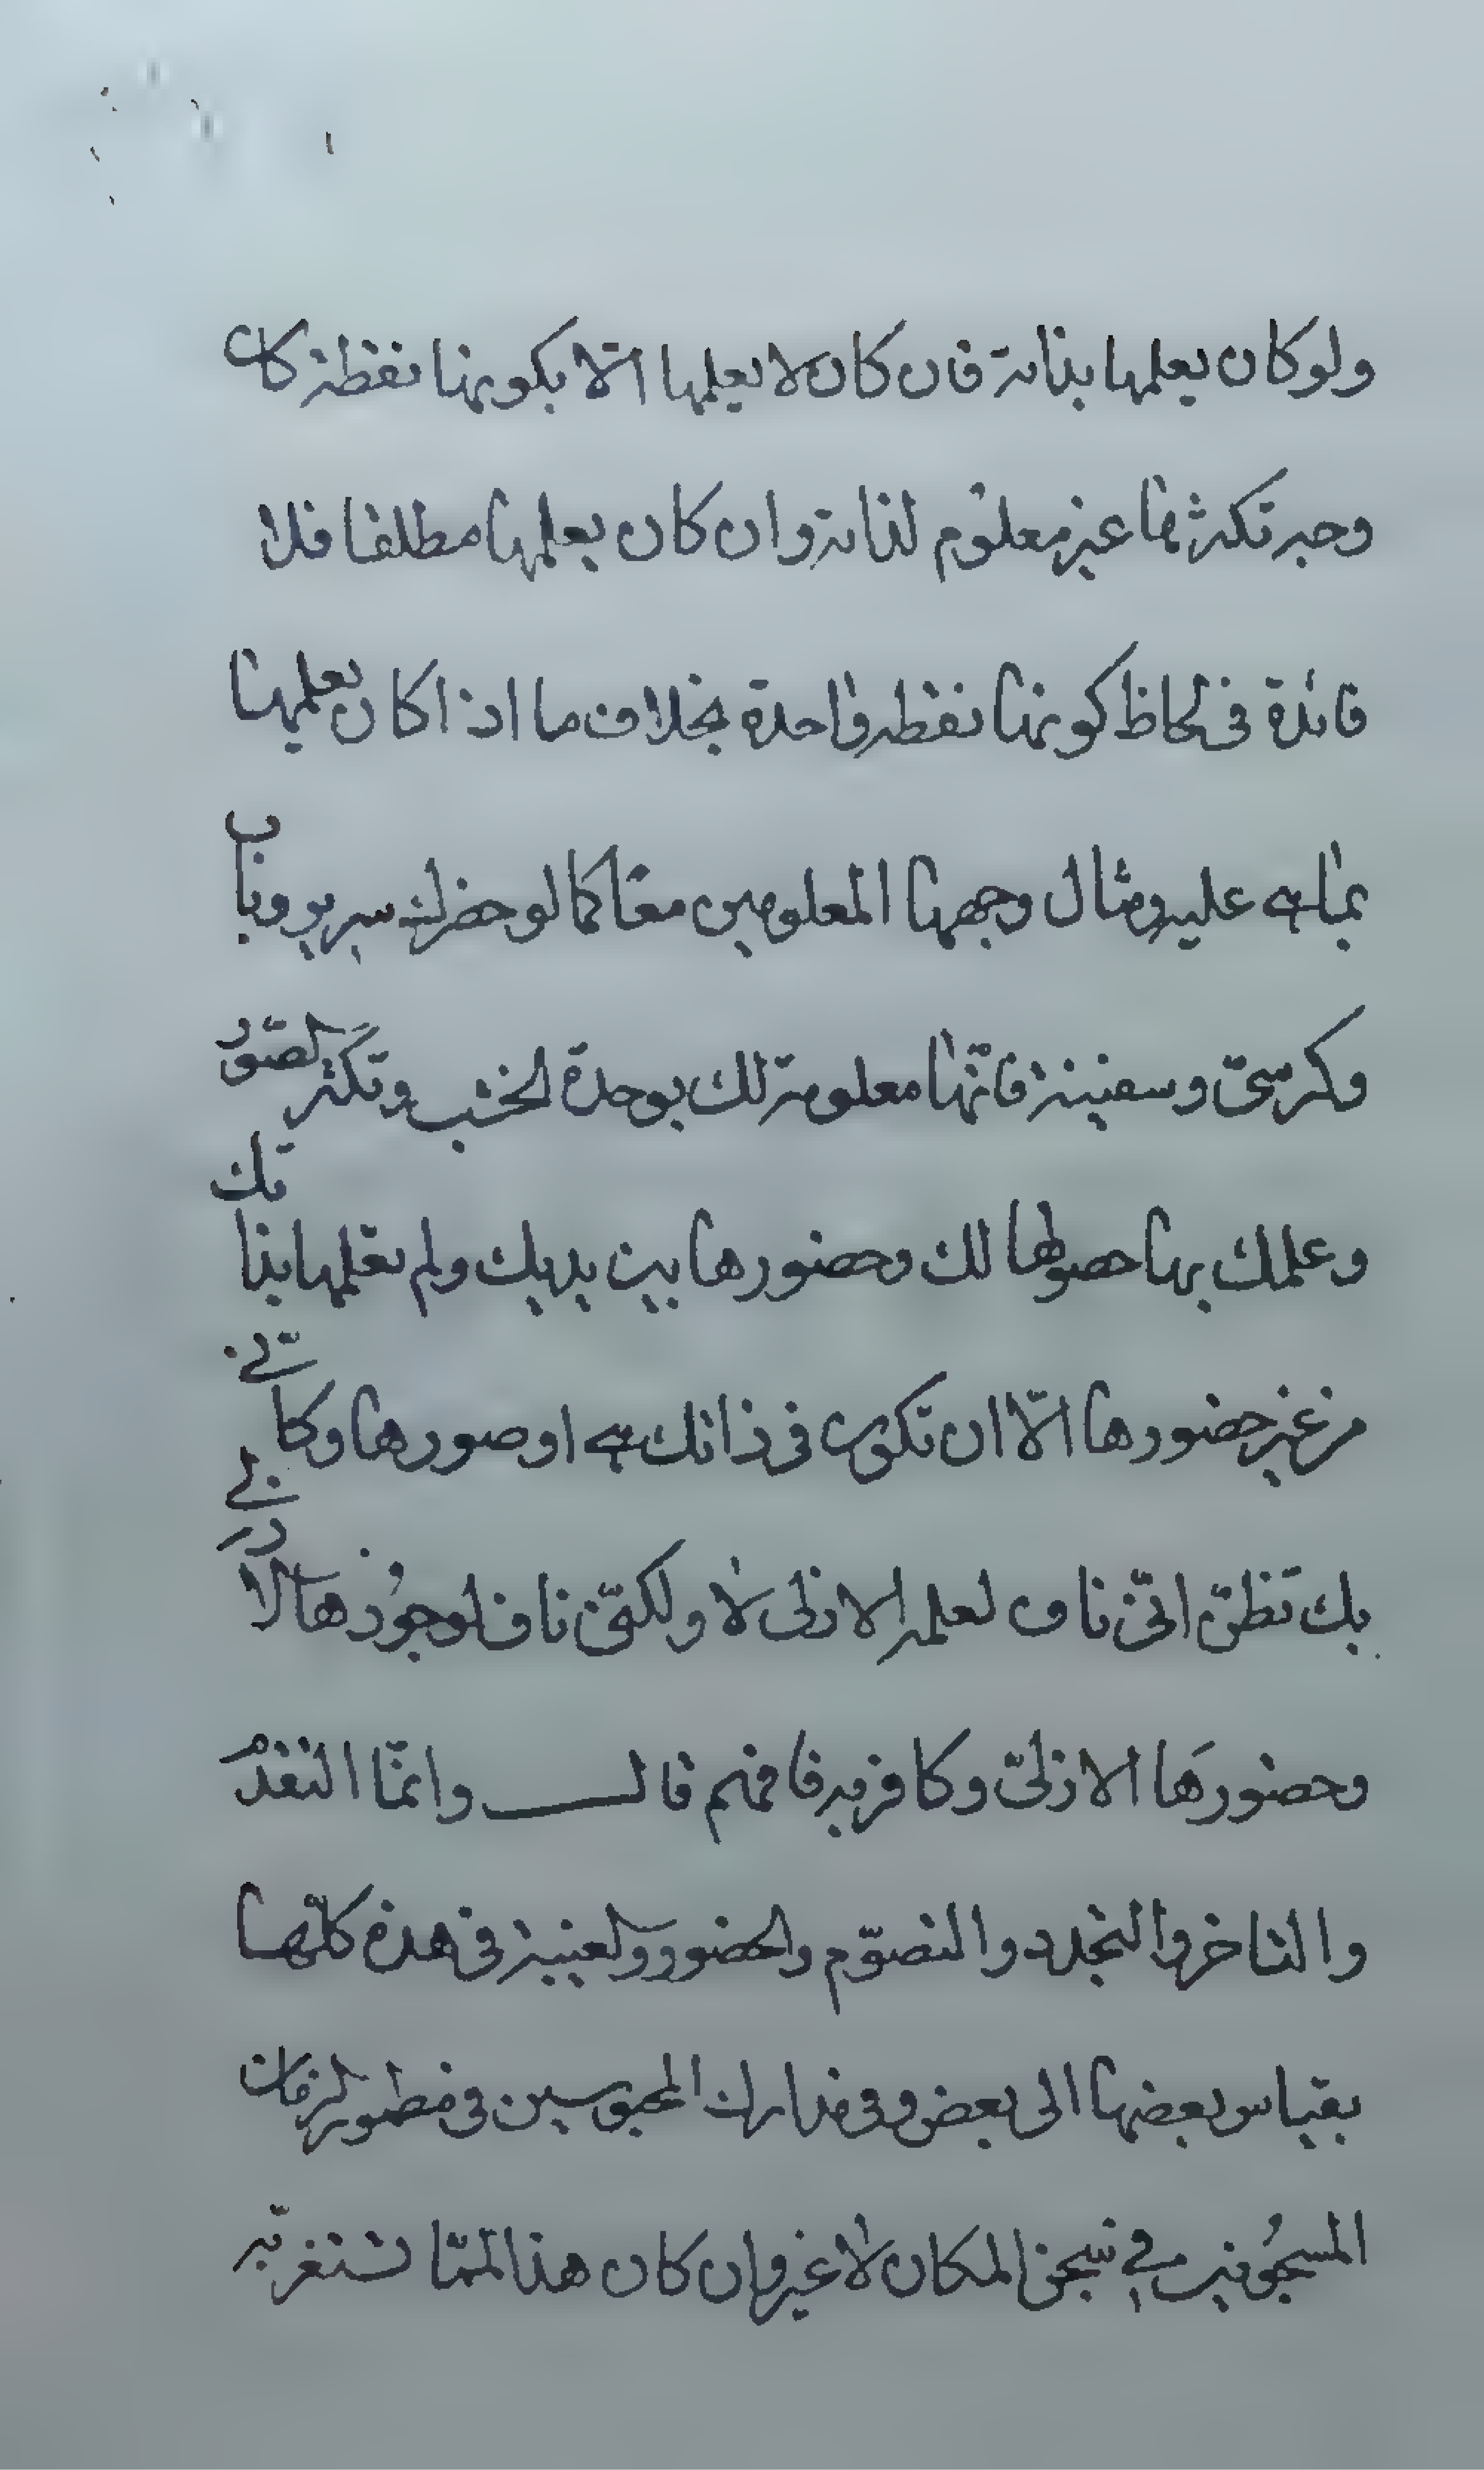 ولو كان يعلمها بذاته فان كان لا يعلمها الا بكونها نقطة كان
وجه تكثرها غير معلوم لذاته وان كان يعلمها مطلقا فلا
فائدة في لحاظ كونها نقطه واحدة بخلاف ما اذا كان يعلمها
بما هي عليه ومثال وجهها المعلومين معًا كما لو حضر لك سرير وباب
وكرسيّ وسفينة فانّها معلومة لك بوحدة الخشب وتكثر الصّور
وعلمك بها حصولها لك وحضورها بين يديك ولم تعلمها بذاتك
من غير حضورها الّا ان تكون في ذاتك هي او صورها وكانّي
بك تظنّ انّي ناف لعلمه الازلي لا ولكنّي ناف لوجودها الازلي
وحضورها الازليّ وكا فهم قال وانّما التقدم
والتاخر والتجدد والتصوّم والحضور والغيبة في هذه كلّها
بقياس بعضها الى بعض وفي مدارك المحبوسين في مطمورة الزمان
المسجونين في سجن المكان لا غير وان كان هذا لممّا تستغربه